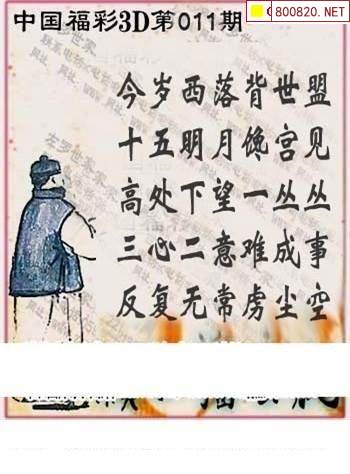 800820.NET
中国福彩3D第011期
今岁西落背世盟
十五明月馋宫见
高处下望一丛丛
三心二意难成事
反复无常虏尘空